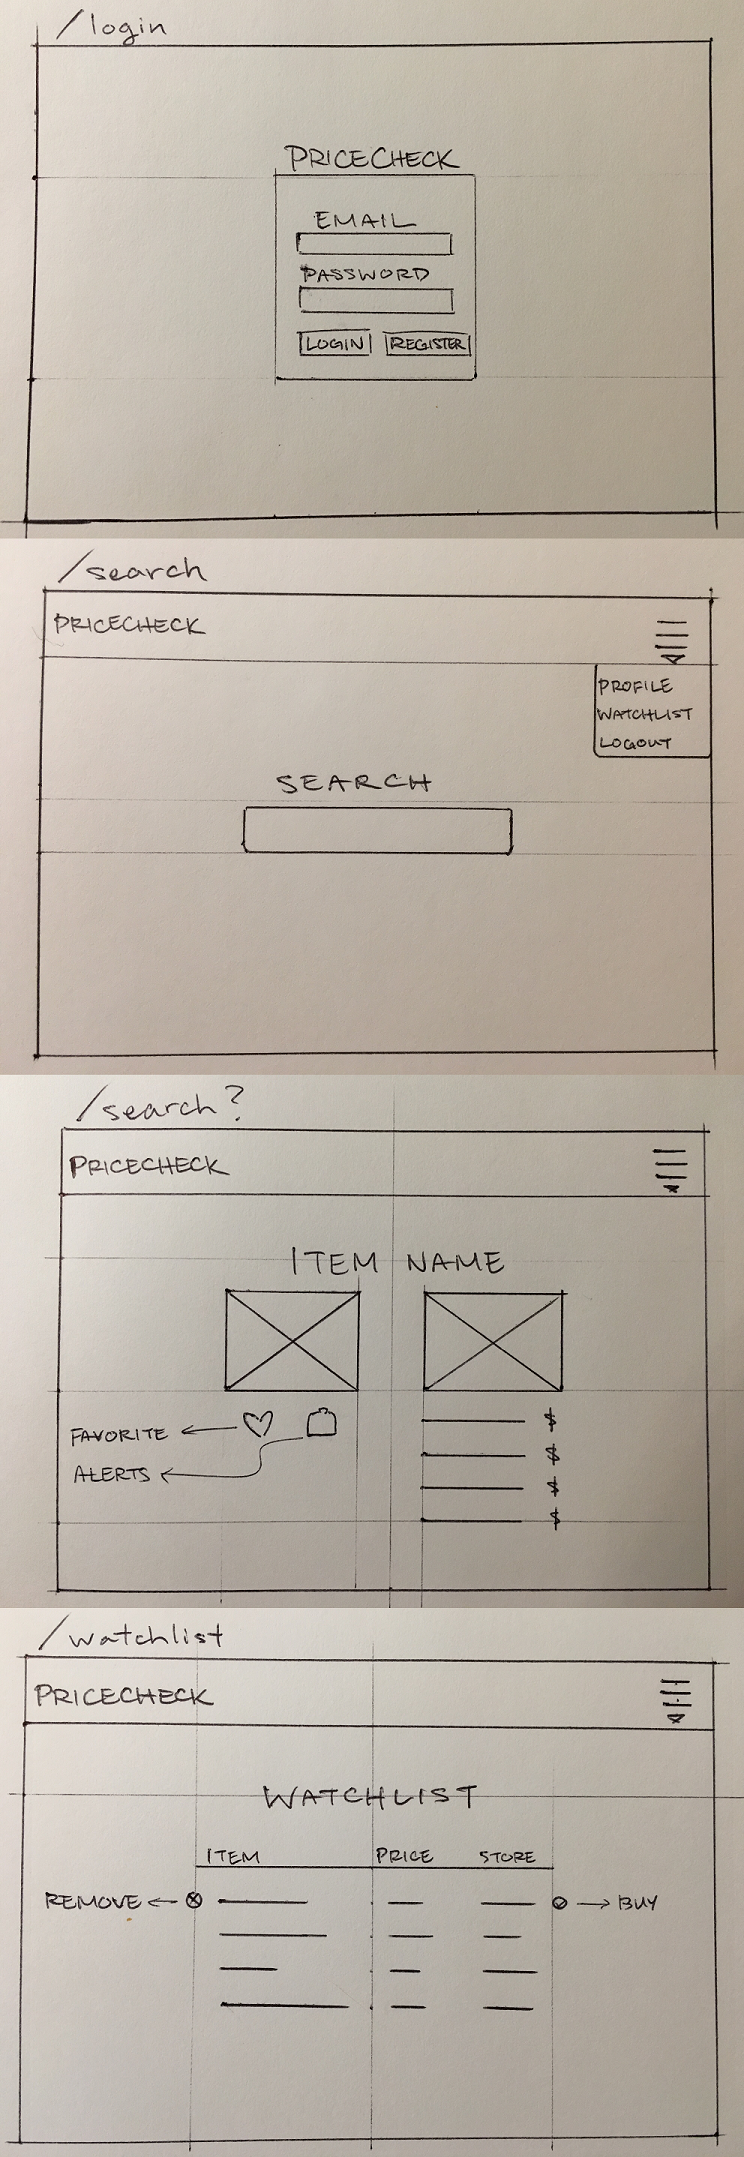 /login
PRICECHECK
EMAIL
PASSWORD
LOGIN REGISTER
/search
PRICECHECK
PROFILE
WATCHLIST
LOGOUT
SEARCH
/search?
PRICECHECK
ITEM NAME
FAVORITE $
ALERTS $
$
$
/watchlist
PRICECHECK
WATCHLIST
ITEM PRICE STORE
REMOVE BUY